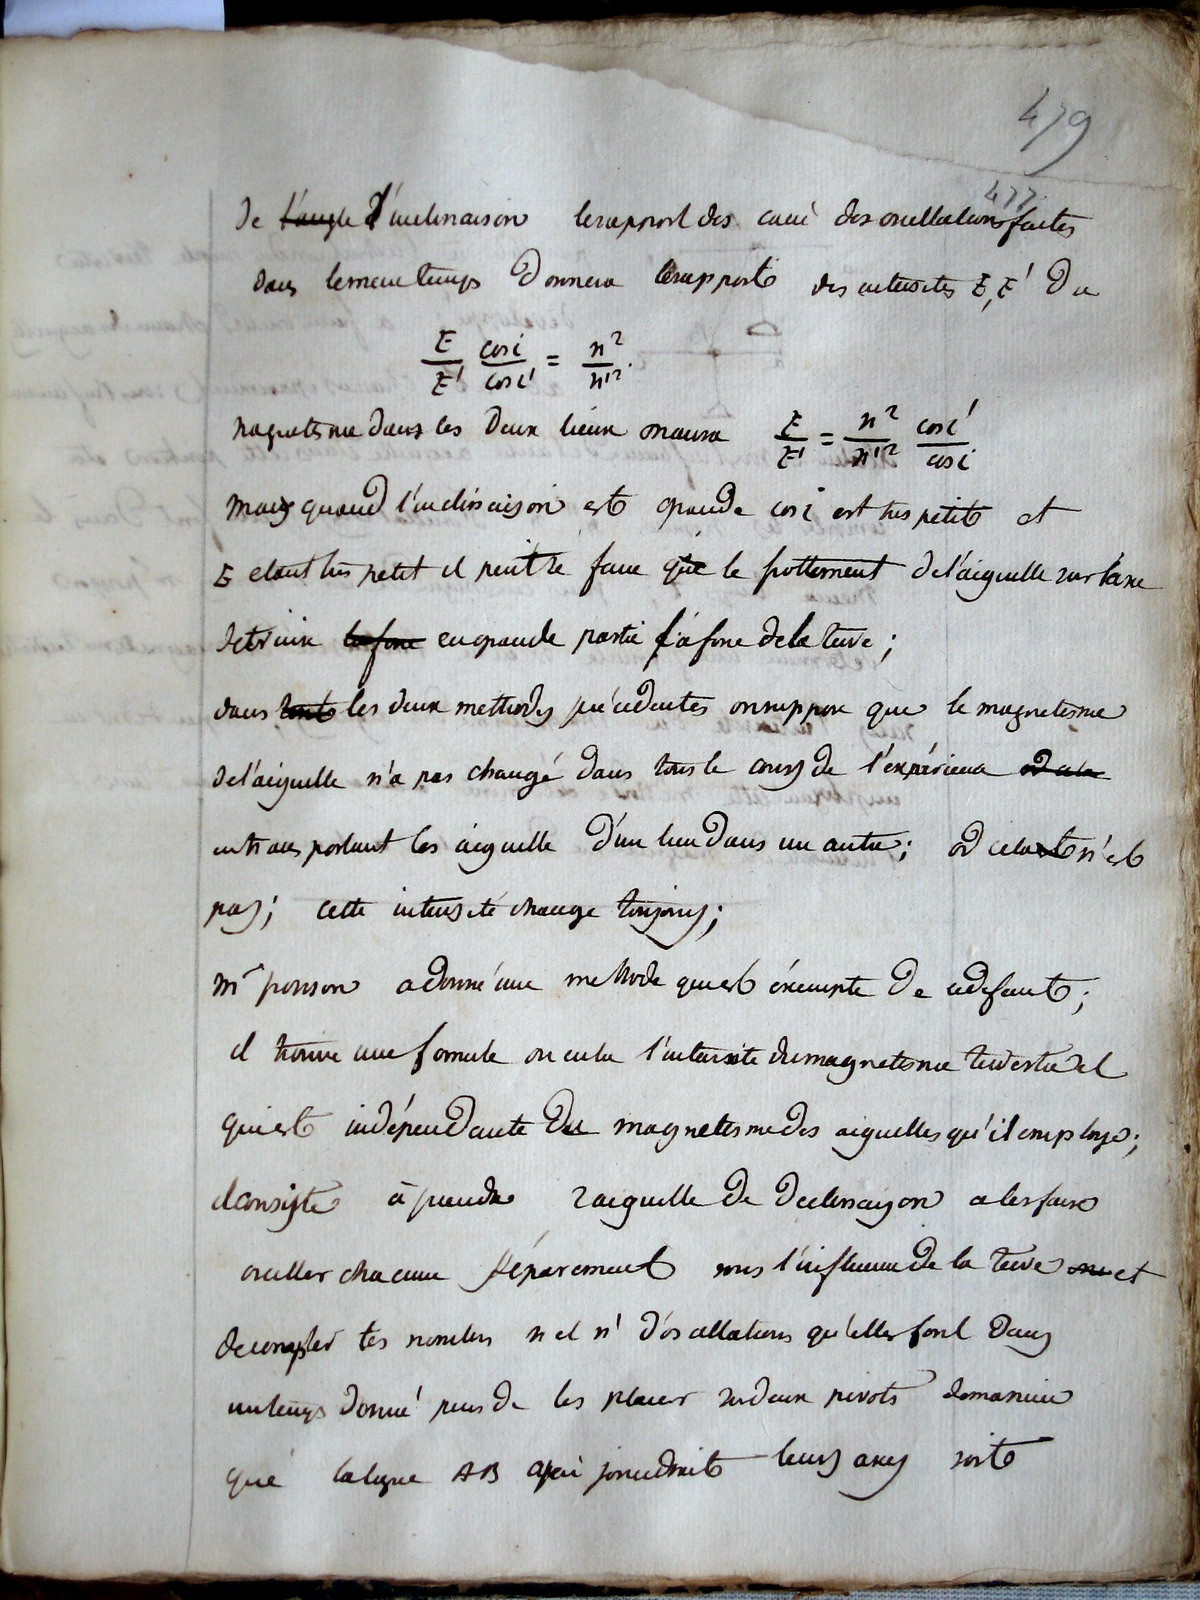 479
477
de l'angle d'inclinaison le rapport des carré des oscillations faites
dans le meme temps donnera le rapport des intensites E, E' du
E/E' cos i/cos i' = n²/n'².
magnetisme dans les deux lieux on aura E/E' = n²/n'² cos i'/cos i
mais quand l'inclinaison est grande cos i est tres petit et
E etant tres petit il peut se faire que le frottement de l'aiguille sur l'axe
detruise la force en grande partie la force de la terre;
dans toute les deux methodes précédentes on suppose que le magnetisme
de l'aiguille n'a pas changé dans tout le cours de l'expérience
en transportant les aiguille d'un lieu dans un autre; or cela n'est
pas; cette intensité change toujours;
mr poisson a donné une methode qui est éxempte de ce defaut;
il trouve une formule ou entre l'intensite du magnetisme terrestre et
qui est indépendante du magnetisme des aiguilles qu'il employe;
il consiste à prendre 2 aiguille de declinaison a les faire
osciller chacune séparement sous l'influence de la terre et
de compter les nombres n et n' d'oscillations qu'elles font dans
un temps donné puis de les placer sur deux pivots de maniere
que la ligne AB qui joindrait leurs axes soit